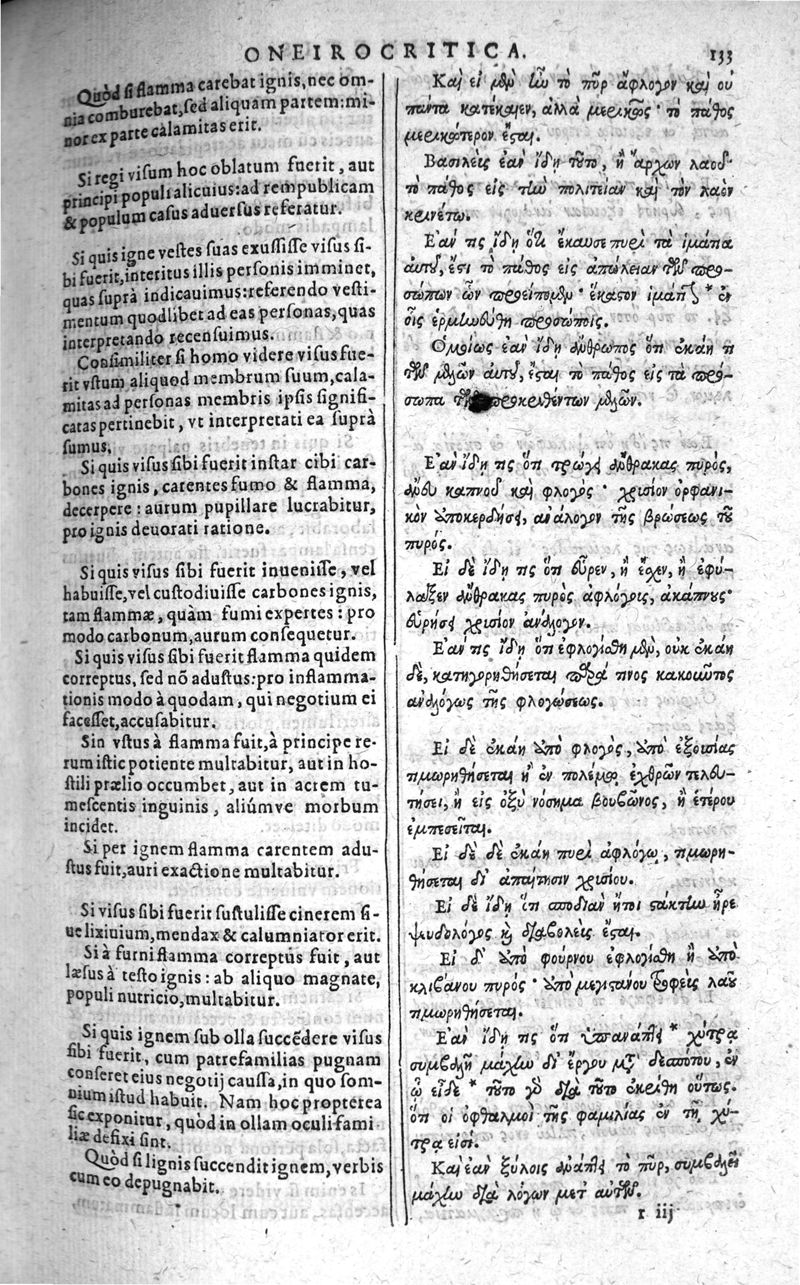 ONEIROCRITICA. 133
Quòd si flamma carebat ignis, nec om-
nia comburebat, sed aliquam partem: mi-
nor ex parte calamitas erit.
Si regi visum hoc oblatum fuerit, aut
principi populi alicuius: ad rempublicam
& populum casus aduersus referatur.
Si quis igne vestes suas exussisse visus si-
bi fuerit, interitus illis personis imminet,
quas suprà indicauimus: referendo vesti-
mentum quodlibet ad eas personas, quas
interpretando recensuimus.
Consimiliter si homo videre visus fue-
rit vstum aliquod membrum suum, cala-
mitas ad personas membris ipsis signifi-
catas pertinebit, vt interpretati ea suprà
sumus.
Si quis visus sibi fuerit instar cibi car-
bones ignis, carentes fumo & flamma,
decerpere: aurum pupillare lucrabitur,
pro ignis deuorati ratione.
Si quis visus sibi fuerit inuenisse, vel
habuisse, vel custodiuisse carbones ignis,
tam flammæ, quàm fumi expertes: pro
modo carbonum, aurum consequetur.
Si quis visus sibi fuerit flamma quidem
correptus, sed nō adustus: pro inflamma-
tionis modo à quodam, qui negotium ei
facesset, accusabitur.
Sin vstus à flamma fuit, à principe re-
rum istic potiente multabitur, aut in ho-
stili prælio occumbet, aut in acrem tu-
mescentis inguinis, aliúmve morbum
incidet.
Si per ignem flamma carentem adu-
stus fuit, auri exactione multabitur.
Si visus sibi fuerit sustulisse cinerem si-
ue lixiuium, mendax & calumniator erit.
Si à furni flamma correptus fuit, aut
læsus à testo ignis: ab aliquo magnate,
populi nutricio, multabitur.
Si quis ignem sub olla succēdere visus
sibi fuerit, cum patrefamilias pugnam
conseret eius negotij caussa, in quo som-
nium istud habuit. Nam hoc propterea
sic exponitur, quòd in ollam oculi fami
liæ defixi sint.
Quòd si lignis succendit ignem, verbis
cum eo depugnabit.
Καὶ εἰ μὲν ἦν τὸ πῦρ ἄφλογον καὶ οὐ
πάντα κατέκαιεν, ἀλλὰ μερικῶς· τὸ πάθος
μερικώτερον ἔσται.
Βασιλεὺς ἐὰν ἴδῃ τοῦτο, ἢ ἄρχων λαοῦ·
τὸ πάθος εἰς τὴν πολιτείαν καὶ τὸν λαὸν
κρινέτω.
Ἐάν τις ἴδῃ ὅτι ἔκαυσε πυρὶ τὰ ἱμάτια
αὐτοῦ, ἔστι τὸ πάθος εἰς ἀπώλειαν τῶν προ-
σώπων ὧν προείπομεν· ἕκαστον ἱμάτιον * ἐν
οἷς ἑρμηνεύθη προσώποις.
Ὁμοίως ἐὰν ἴδῃ ἄνθρωπος ὅτι ἐκάη τι
τῶν μελῶν αὐτοῦ, ἔσται τὸ πάθος εἰς τὰ πρό-
σωπα τῶν προκριθέντων μελῶν.
Ἐὰν ἴδῃ τις ὅτι τρώγει ἄνθρακας πυρός,
ἄνευ καπνοῦ καὶ φλογός· χρυσίον ὀρφανι-
κὸν ἀποκερδήσει, ἀνάλογον τῆς βρώσεως τοῦ
πυρός.
Εἰ δὲ ἴδῃ τις ὅτι εὗρεν, ἢ ἔσχεν, ἢ ἐφύ-
λαξεν ἄνθρακας πυρὸς ἀφλόγους, ἀκάπνους·
εὑρήσει χρυσίον ἀνάλογον.
Ἐάν τις ἴδῃ ὅτι ἐφλογίσθη μὲν, οὐκ ἐκάη
δὲ, κατηγορηθήσεται παρά τινος κακοιῶντος
ἀναλόγως τῆς φλογώσεως.
Εἰ δὲ ἐκάη ἀπὸ φλογὸς, ἀπὸ ἐξουσίας
τιμωρηθήσεται ἢ ἐν πολέμῳ ἐχθρῶν τελευ-
τήσει, ἢ εἰς ὀξὺ νόσημα βουβῶνος, ἢ ἑτέρου
ἐμπεσεῖται.
Εἰ δὲ δὲ ἐκάη πυρὶ ἀφλόγῳ, τιμωρη-
θήσεται δι' ἀπαίτησιν χρυσίου.
Εἰ δὲ ἴδῃ ὅτι σποδιὰν ἤτοι στάκτην ἦρε
ψευδολόγος καὶ διαβολεὺς ἔσται.
Εἰ δ' ἀπὸ φούρνου ἐφλογίσθη ἢ ἀπὸ
κλιβάνου πυρός· ἀπὸ μεγιστάνου τροφεῖς λαοῦ
τιμωρηθήσεται.
Ἐὰν ἴδῃ τις ὅτι ὑπανάπτει * χύτρα
συμβαλεῖ μάχην δι' ἔργου μετὰ δεσπότου, ἐν
ᾧ εἶδε * τοῦτο γὰρ διὰ τοῦτο ἐκρίθη οὕτως.
ὅτι οἱ ὀφθαλμοὶ τῆς φαμιλίας ἐν τῇ χύ-
τρᾳ εἰσί.
Καὶ ἐὰν ξύλοις ἀνάπτει τὸ πῦρ, συμβαλεῖ
μάχην διὰ λόγων μετ' αὐτοῦ.
r iij